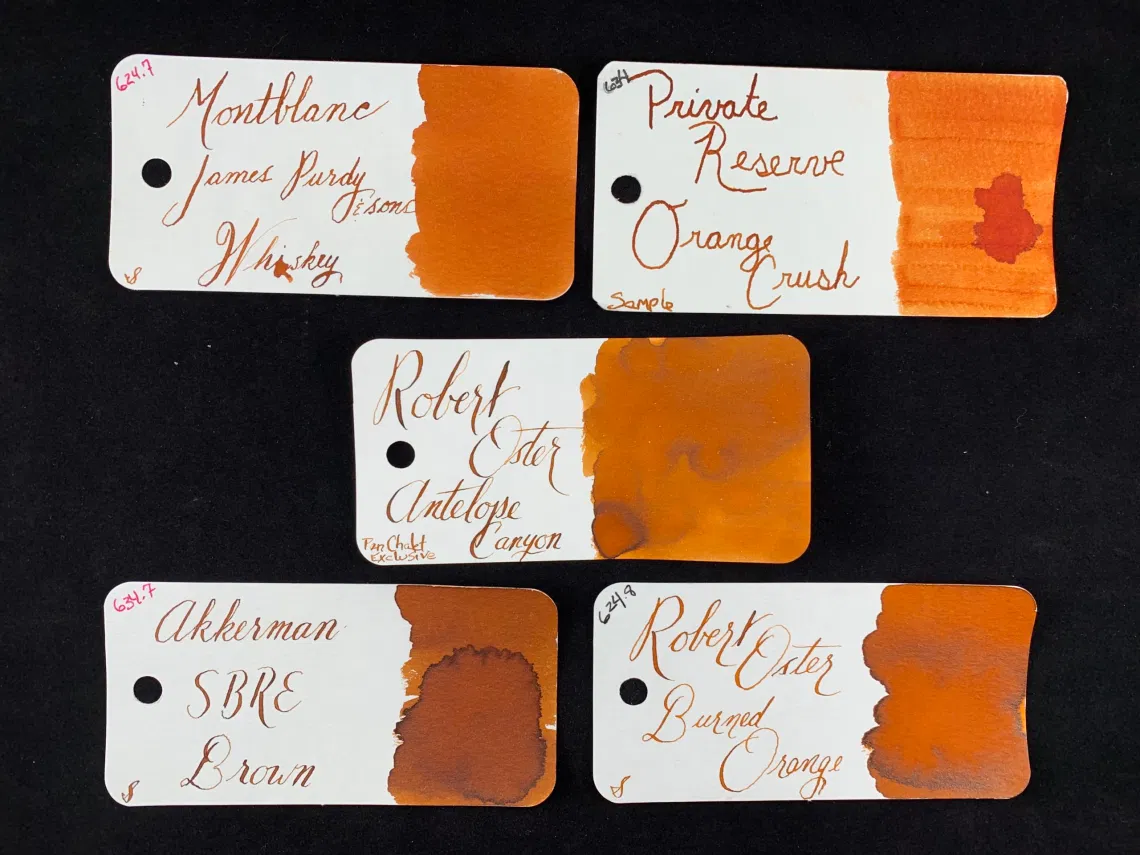 624.7
Montblanc
James Purdy
& sons
Whiskey
S
634
Private
Reserve
Orange
Crush
Sample
Robert
Oster
Antelope
Canyon
Pen Chalet
Exclusive
634.7
Akkerman
SBRE
Brown
S
624.8
Robert
Oster
Burned
Orange
S